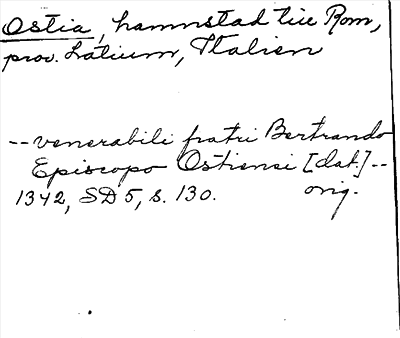 Ostia, hamnstad till Rom,
prov. Latium, Italien
--venerabili fratri Bertrando
Episcopo Ostiensi [dat.]--
1342, SD 5, s. 130. orig.